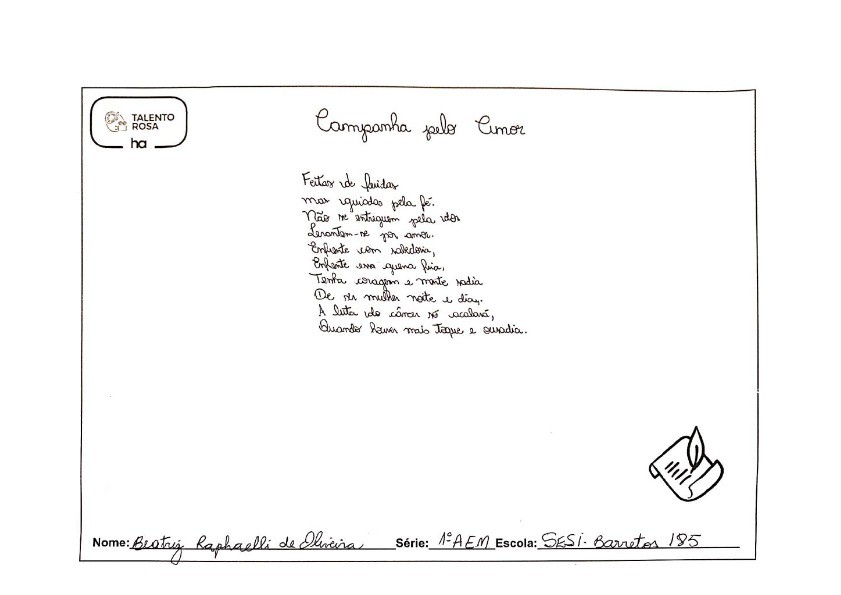 TALENTO
ROSA
ha
Campanha pelo Amor
Feitas de feridas
mas guiadas pela fé.
Não se entreguem pela dor
Levantem-se por amor.
Enfrente com sabedoria,
Enfrente essa guerra fria,
Tenha coragem e mente sadia
De ser mulher noite e dia,.
A luta do câncer só acabará,
Quando houver mais toque e ousadia.
Nome: Beatriz Raphaelli de Oliveira Série: 1ºAEM Escola: SESI. Barretos 185